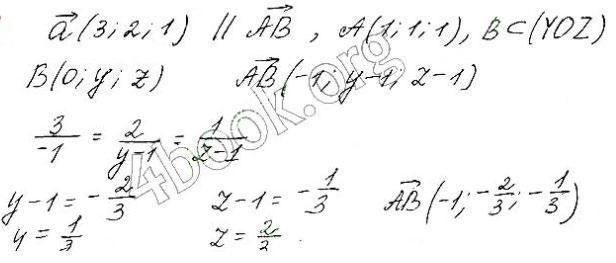 a⃗ (3; 2; 1) // AB⃗ , A(1; 1; 1), B ⊂ (YOZ)
B(0; y; z) AB⃗ (-1; y-1; z-1)
3/-1 = 2/y-1 = 1/z-1
y-1 = -2/3 z-1 = -1/3 AB⃗ (-1; -2/3; -1/3)
y = 1/3 z = 2/3
4book.org